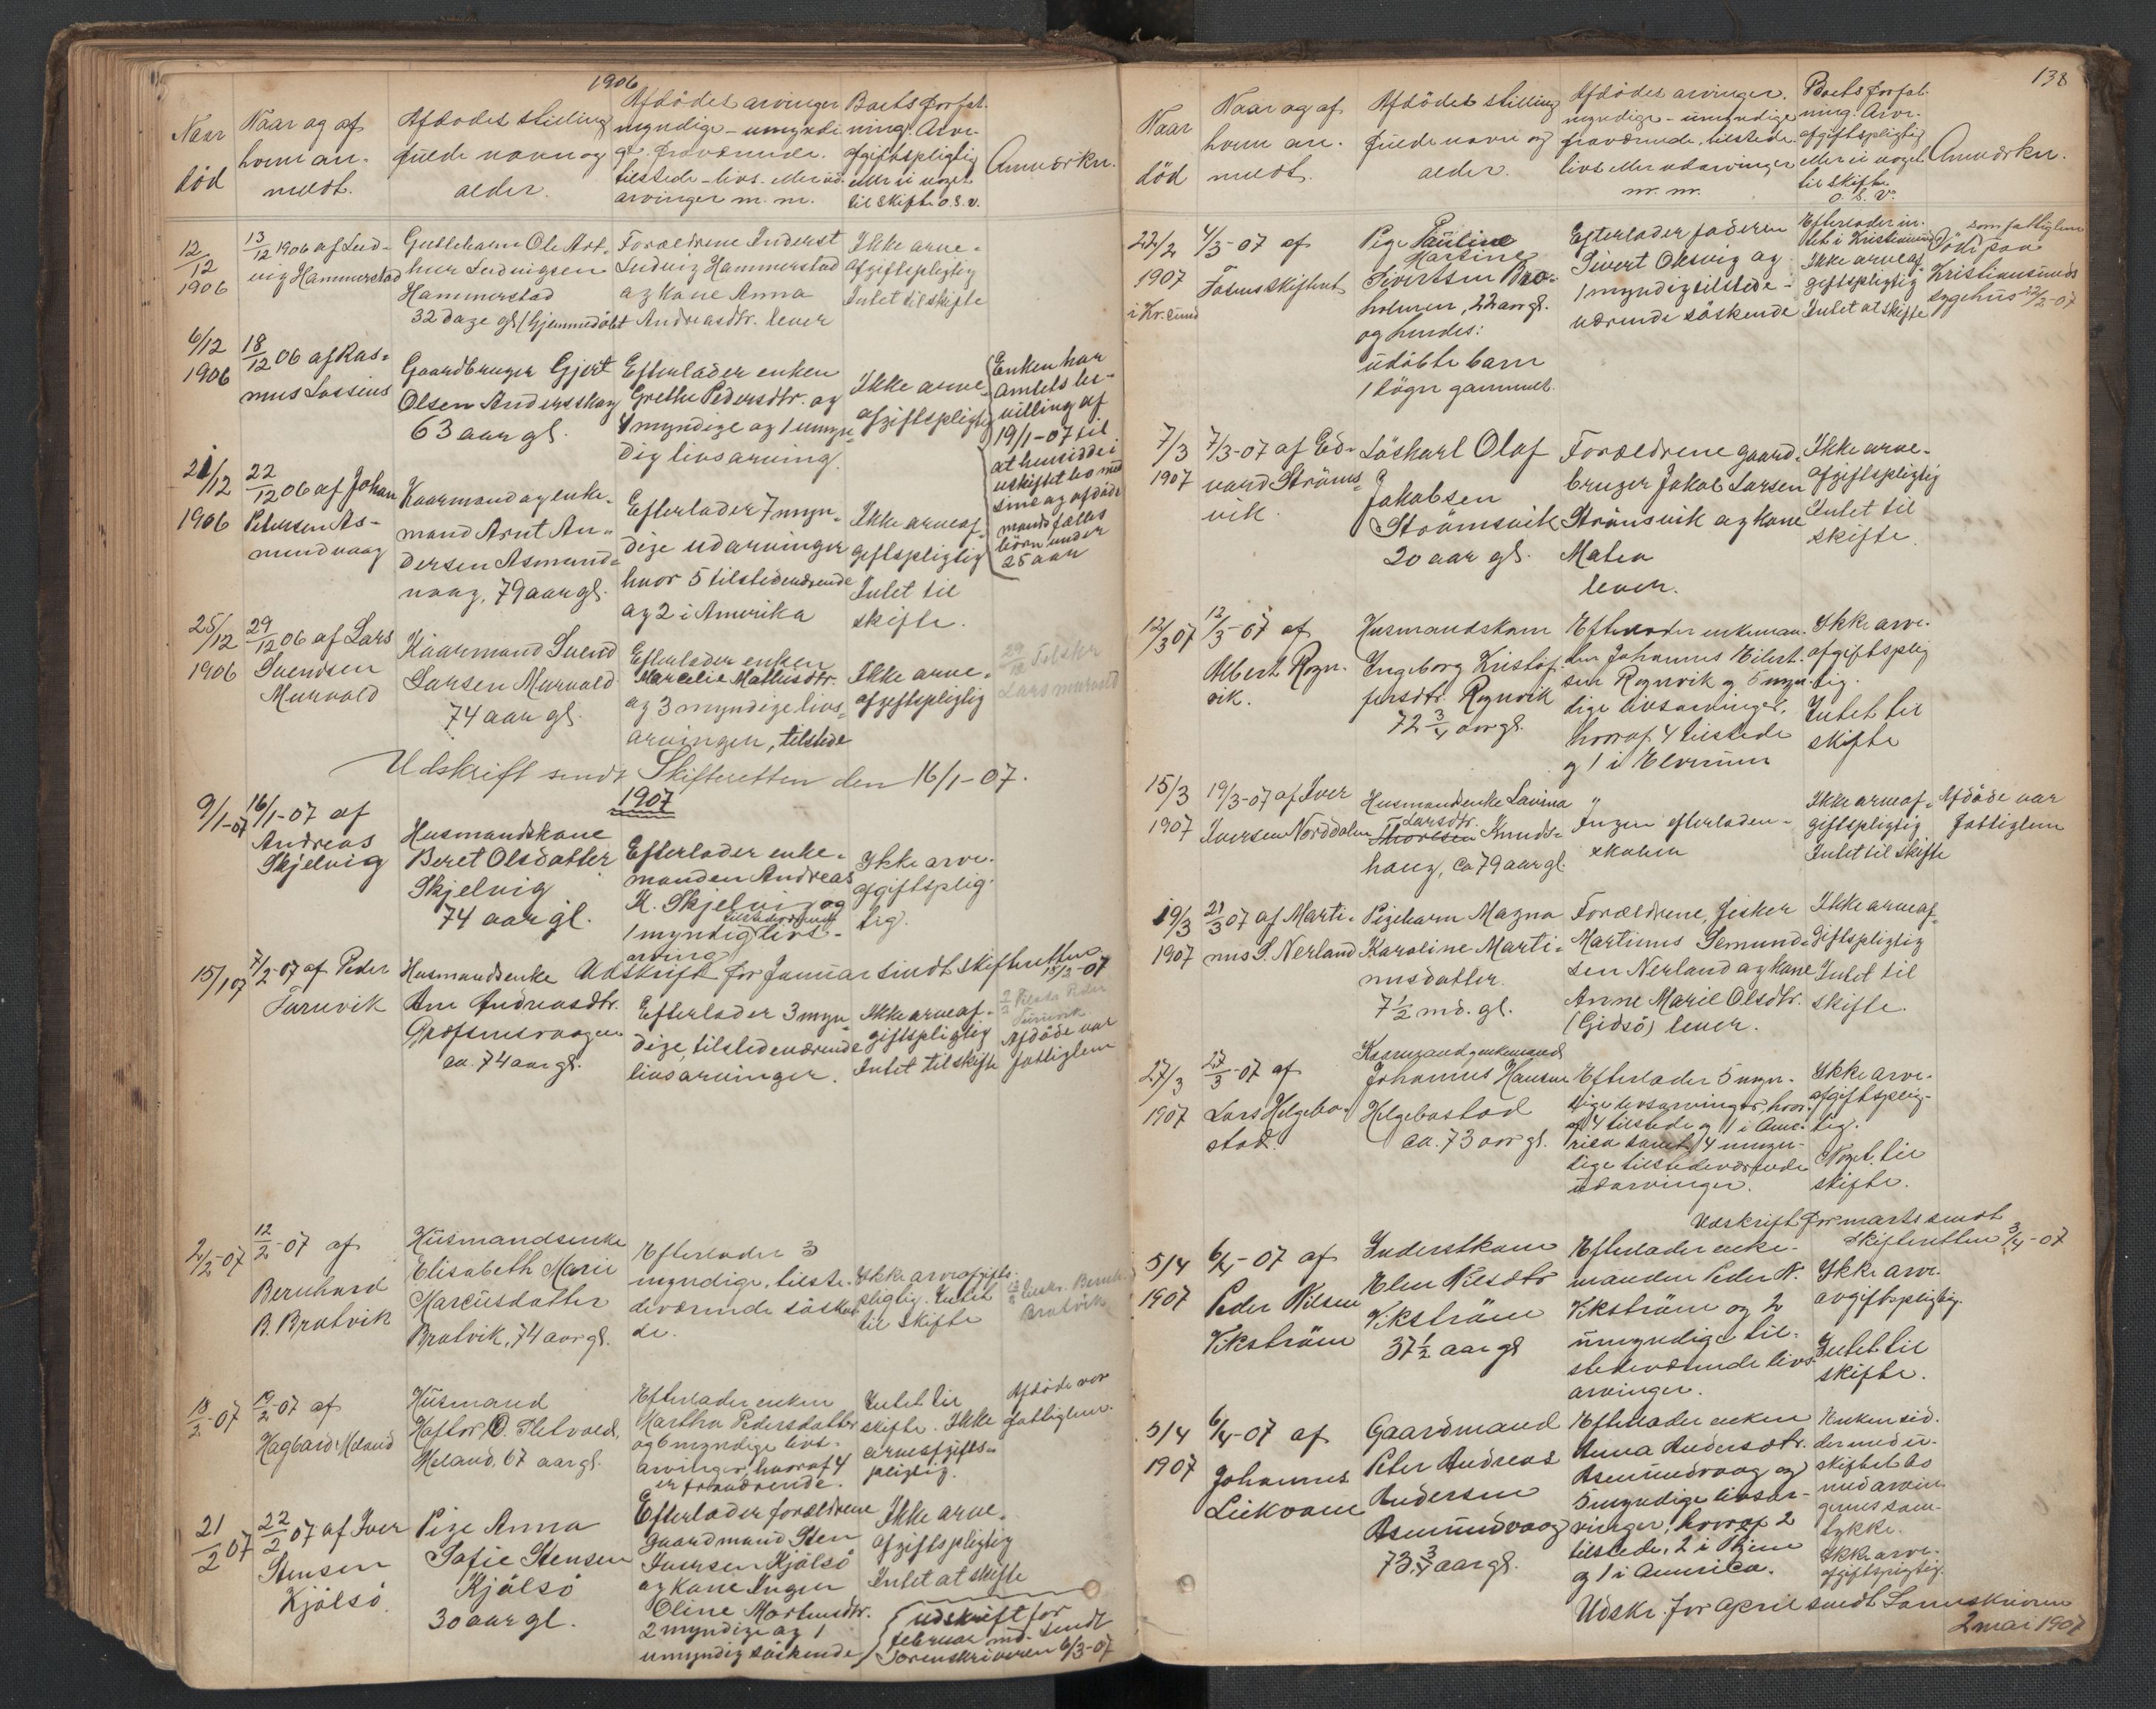 1906
Naar
död
Naar og af
hvem an-
meldt.
Afdödes stilling
fulde navn og
alder.
Afdödes arvinger
myndige - umyndi
ge. fraværende.
tilstede - livs. eller ud-
arvinger m. m.
Boets forfat-
ning. Arve-
afgiftspligtig
eller ei noget
til skifte o.s.v.
Anmærkn.
12/12
1906
13/12 1906 af Lud-
vig Hammerstad
Guttebarn Ole Art-
hur Ludvigsen
Hammerstad
32 dage gl (hjemmedöbt
Forældrene Inderst
Ludvig Hammerstad
og kone Anna
Andreasdtr. lever
Ikke arve-
afgiftspligtig
Intet til skifte
6/12
1906
18/12 06 af Ras-
mus Lossius
Gaardbruger Gjert
Olsen Andersskog
63 aar gl.
Efterlader enken
Grethe Pedersdtr. og
4 myndige og 1 umyn-
dig livsarving.
Ikke arve-
afgiftspligtig
Enken har
amtets be-
villing af
19/1-07 til
at hensidde i
uskiftet bo med
sine og afdöde
mands fælles
börn under
25 aar
21/12
1906
22/12 06 af Johan
Petersen As-
mundvaag
Kaarmand og enke-
mand Arnt An-
dersen Asmund-
vaag, 79 aar gl.
Efterlader 7 myn-
dige udarvinger
hvor 5 tilstedeværende
og 2 i Amerika
Ikke arveaf-
giftspligtig
Intet til
skifte.
25/12
1906
29/12 06 af Lars
Svendsen
Murvold
Kaarmand Svend
Larsen Murvold
74 aar gl.
Efterlader enken
Marcelie Mathisdtr.
og 3 myndige livs-
arvinger, tilstede
Ikke arve-
afgiftspligtig
29/12 Tilskr
Lars murvold
Udskrift sendt Skifteretten den 16/1-07.
1907
9/1-07
16/1-07 af
Andreas
Skjelvig
Husmandskone
Beret Olsdatter
Skjelvig
74 aar gl.
Efterlader enke-
manden Andreas
K. Skjelvig og
tilstedeværende
1 myndig livs-
arving
Ikke arve-
afgiftsplig-
tig.
Udskrift for Januar sendt skifteretten
15/2-07
15/1 07
7/2-07 af Peder
Turnvik
Husmandsenke
Ane Andreasdtr.
Grofsmsvaagen
ca. 74 aar gl.
Efterlader 3 myn-
dige, tilstedeværende
livsarvinger.
Ikke arveaf-
giftspligtig
Intet til skifte
Afdöde var
fattiglem
2/2-07
12/2-07 af
Bernhard
B. Bratvik
Husmandsenke
Elisabeth Marie
Marcusdatter
Bratvik, 74 aar gl.
Efterlader 3
myndige, tilste-
deværende sösken
de.
Ikke arveafgifts-
pligtig. Intet
til skifte
13/2 tilskr. Bernh.
Bratvik
18/2-07
19/2-07 af
Hagbart Meland
Husmand
Haftor O. Thetvold,
Meland, 67 aar gl.
Efterlader enken
Martha Pedersdatter
og 6 myndige livs-
arvinger, hvoraf 4
er fraværende.
Intet til
skifte. Ikke
arveafgifts-
pligtig.
Afdöde var
fattiglem.
21/2 07
22/2 07 af Iver
Stensen
Kjölsö
Pige Anna
Sofie Stensen
Kjölsö
30 aar gl.
Efterlader forældrene
gaardmand Sten
Iversen Kjölsö
og kone Inger
Oline Mortensdtr.
2 myndige og 1
umyndig söskende
Ikke arve-
afgiftspligtig
Intet at skifte
Udskrift for
februar md. sendt
Sorenskriveren 6/3-07
138
Naar
död
Naar og af
hvem an-
meldt.
Afdödes stilling
fulde navn og
alder.
Afdödes arvinger.
myndige - umyndige
fraværende, tilstede
livs eller udarvinger
m. m.
Boets forfat-
ning. Arve-
afgiftspligtig
eller ei noget
til skifte
o. s. v.
Anmærkn.
22/2
1907
i Kr.sund
4/3-07 af
Fosens skifteret
Pige Pauline
Martine
Sivertsen Bro-
holmen, 22 aar gl.
og hendes:
udöbte barn
1 dögn gammelt.
Efterlader faderen
Sivert Olesvig og
1 myndig tilstede-
værende söskende
Efterlader in-
tet i Kristiansund
Ikke arveaf
giftspligtig
Intet at skifte
som fattiglem
Död paa
Kristiansunds
sygehus 22/2-07
7/3
1907
7/3-07 af Ed-
vard Ströms-
vik.
Löskarl Olaf
Jakobsen
Strömsvik
20 aar gl.
Forældrene gaard-
bruger Jakob Larsen
Strömsvik og kone
Matea
lever.
Ikke arve-
afgiftspligtig
Intet til
skifte.
12/3 07
12/3-07 af
Albert Rogn-
vik.
Husmandskone
Ingeborg Kristof-
fersdtr. Rognvik
72 3/4 aar gl.
Efterlader enkeman-
den Johannes Eilert-
sen Rognvik og 5 myn-
dige livsarvinger,
hvoraf 4 tilstede
og 1 i Elverum
Ikke arve-
afgiftsplig
tig.
Intet til
skifte
15/3
1907
19/3-07 af Iver
Iversen Norddalen
Husmandsenke Lavina
Larsdtr.
Thorlsen Knuds-
haug, ca 79 aar gl.
Ingen efterladen-
skaber
Ikke arveaf-
giftspligtig
Intet til skifte
Afdöde var
fattiglem
19/3
1907
21/3 07 af Marti-
nus S. Nerland
Pigebarn Magna
Karoline Marti-
nusdatter.
7 1/2 md. gl.
Forældrene, fisker
Martinus Semund-
sen Nerland og kone
Anne Marie Olsdtr.
(Gidsö) lever.
Ikke arveaf-
giftspligtig
Intet til
skifte.
27/3
1907
27/3-07 af
Lars Helgebo-
stad.
Kaarmand og enkemand
Johannes Hansen
Helgebostad
ca. 73 aar gl.
Efterlader 5 myn-
dige livsarvinger, hvor-
af 4 tilstede og 1 i Ame-
rica samt 4 umyn-
dige tilstedeværende
udarvinger.
Ikke arve-
afgiftsplig-
tig.
Noget til
skifte.
Udskrift for marts sendt
skifteretten 3/4-07
5/4
1907
6/4-07 af
Peder Nilsen
Vikström
Inderstkone
Elen Nilsdtr
Vikström
37 1/2 aar gl
Efterlader enke-
manden Peder N.
Vikström og 2
umyndige til-
stedeværende livs-
arvinger.
Ikke arve-
avgiftspligtig.
Intet til
skifte.
5/4
1907
6/4-07 af
Johannes
Liekvam
Gaardmand
Peter Andreas
Andersen
Asmundvaag
73 3/4 aar gl.
Efterlader enken
Anna Andersdtr.
Asmundvaag og
5 myndige livsar-
vinger, hvoraf 2
tilstede, 2 i Hjem
og 1 i America.
Enken sid-
der med u-
skiftet bo
med arvin
gernes sam-
tykke.
Ikke arve-
afgiftspligtig.
Udskr. for april sendt Sorenskriveren
2 mai 1907